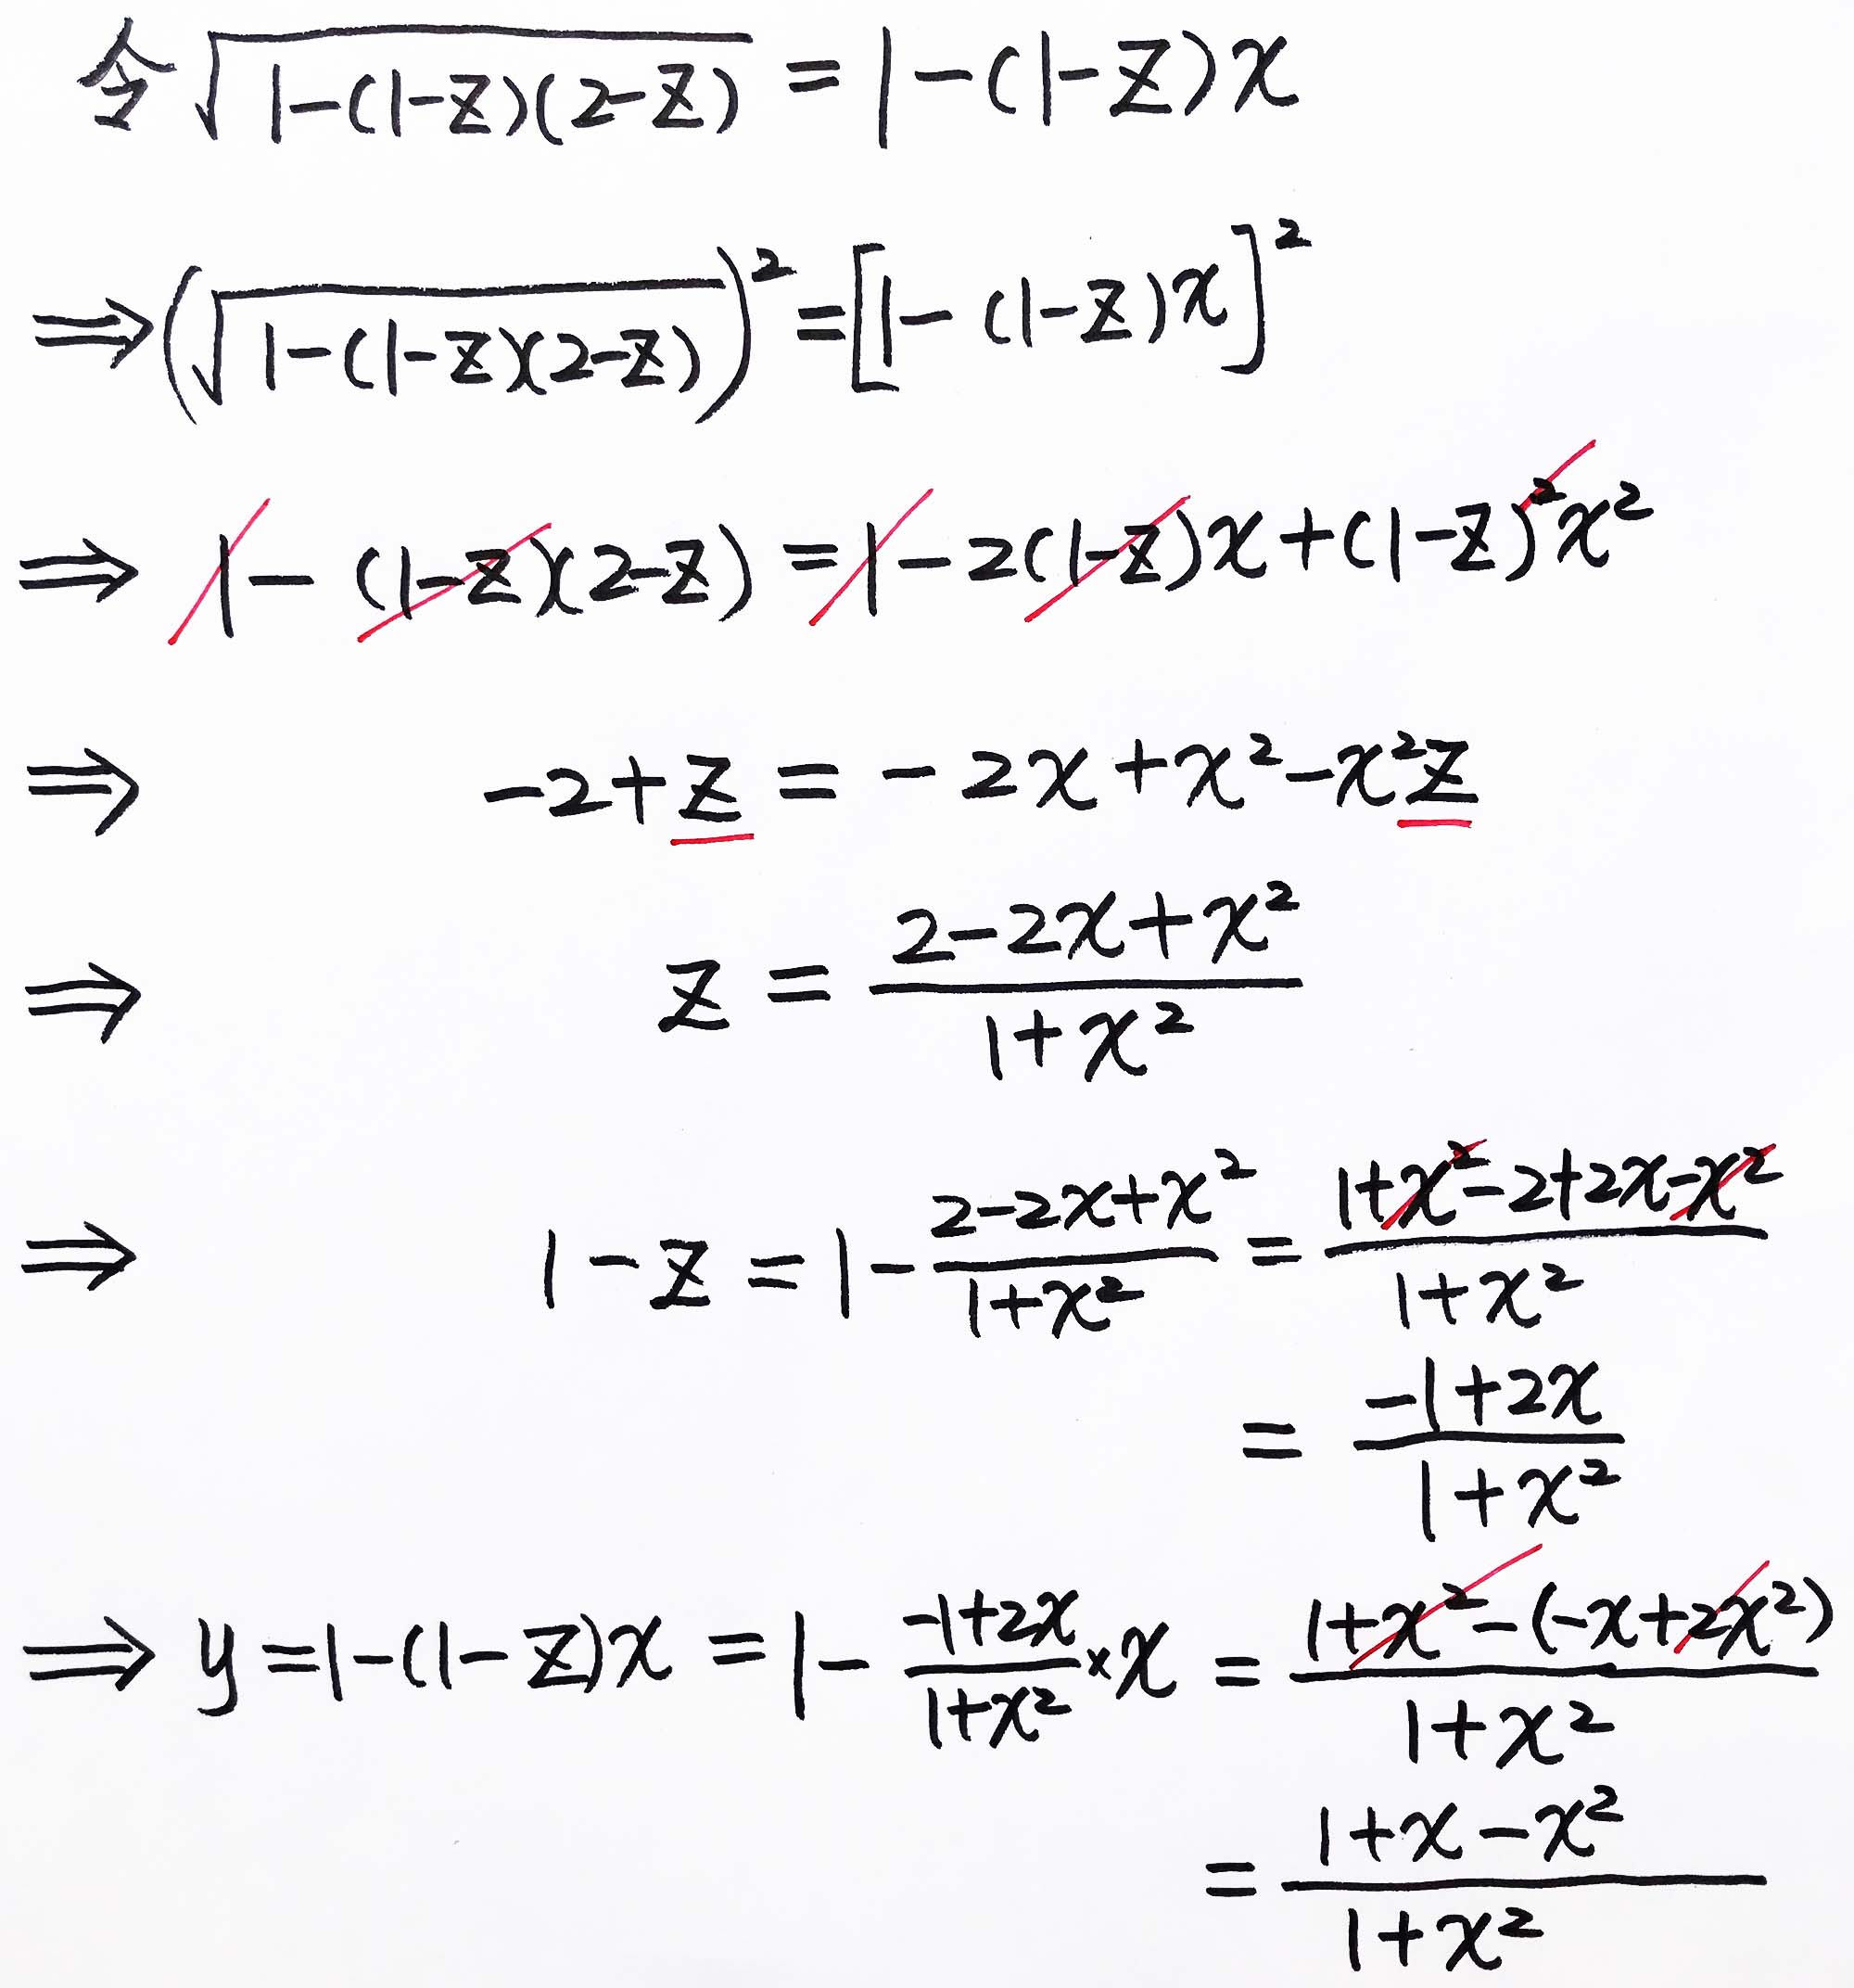 令 √(1-(1-z)(2-z)) = 1-(1-z)x
⇒ (√(1-(1-z)(2-z)))² = [1-(1-z)x]²
⇒ 1-(1-z)(2-z) = 1-2(1-z)x+(1-z)²x²
⇒ -2+z = -2x+x²-x²z
⇒ z = (2-2x+x²)/(1+x²)
⇒ 1-z = 1-(2-2x+x²)/(1+x²) = (1+x²-2+2x-x²)/(1+x²)
= (-1+2x)/(1+x²)
⇒ y=1-(1-z)x = 1-(-1+2x)/(1+x²)×x = (1+x²-(-x+2x²))/(1+x²)
= (1+x-x²)/(1+x²)